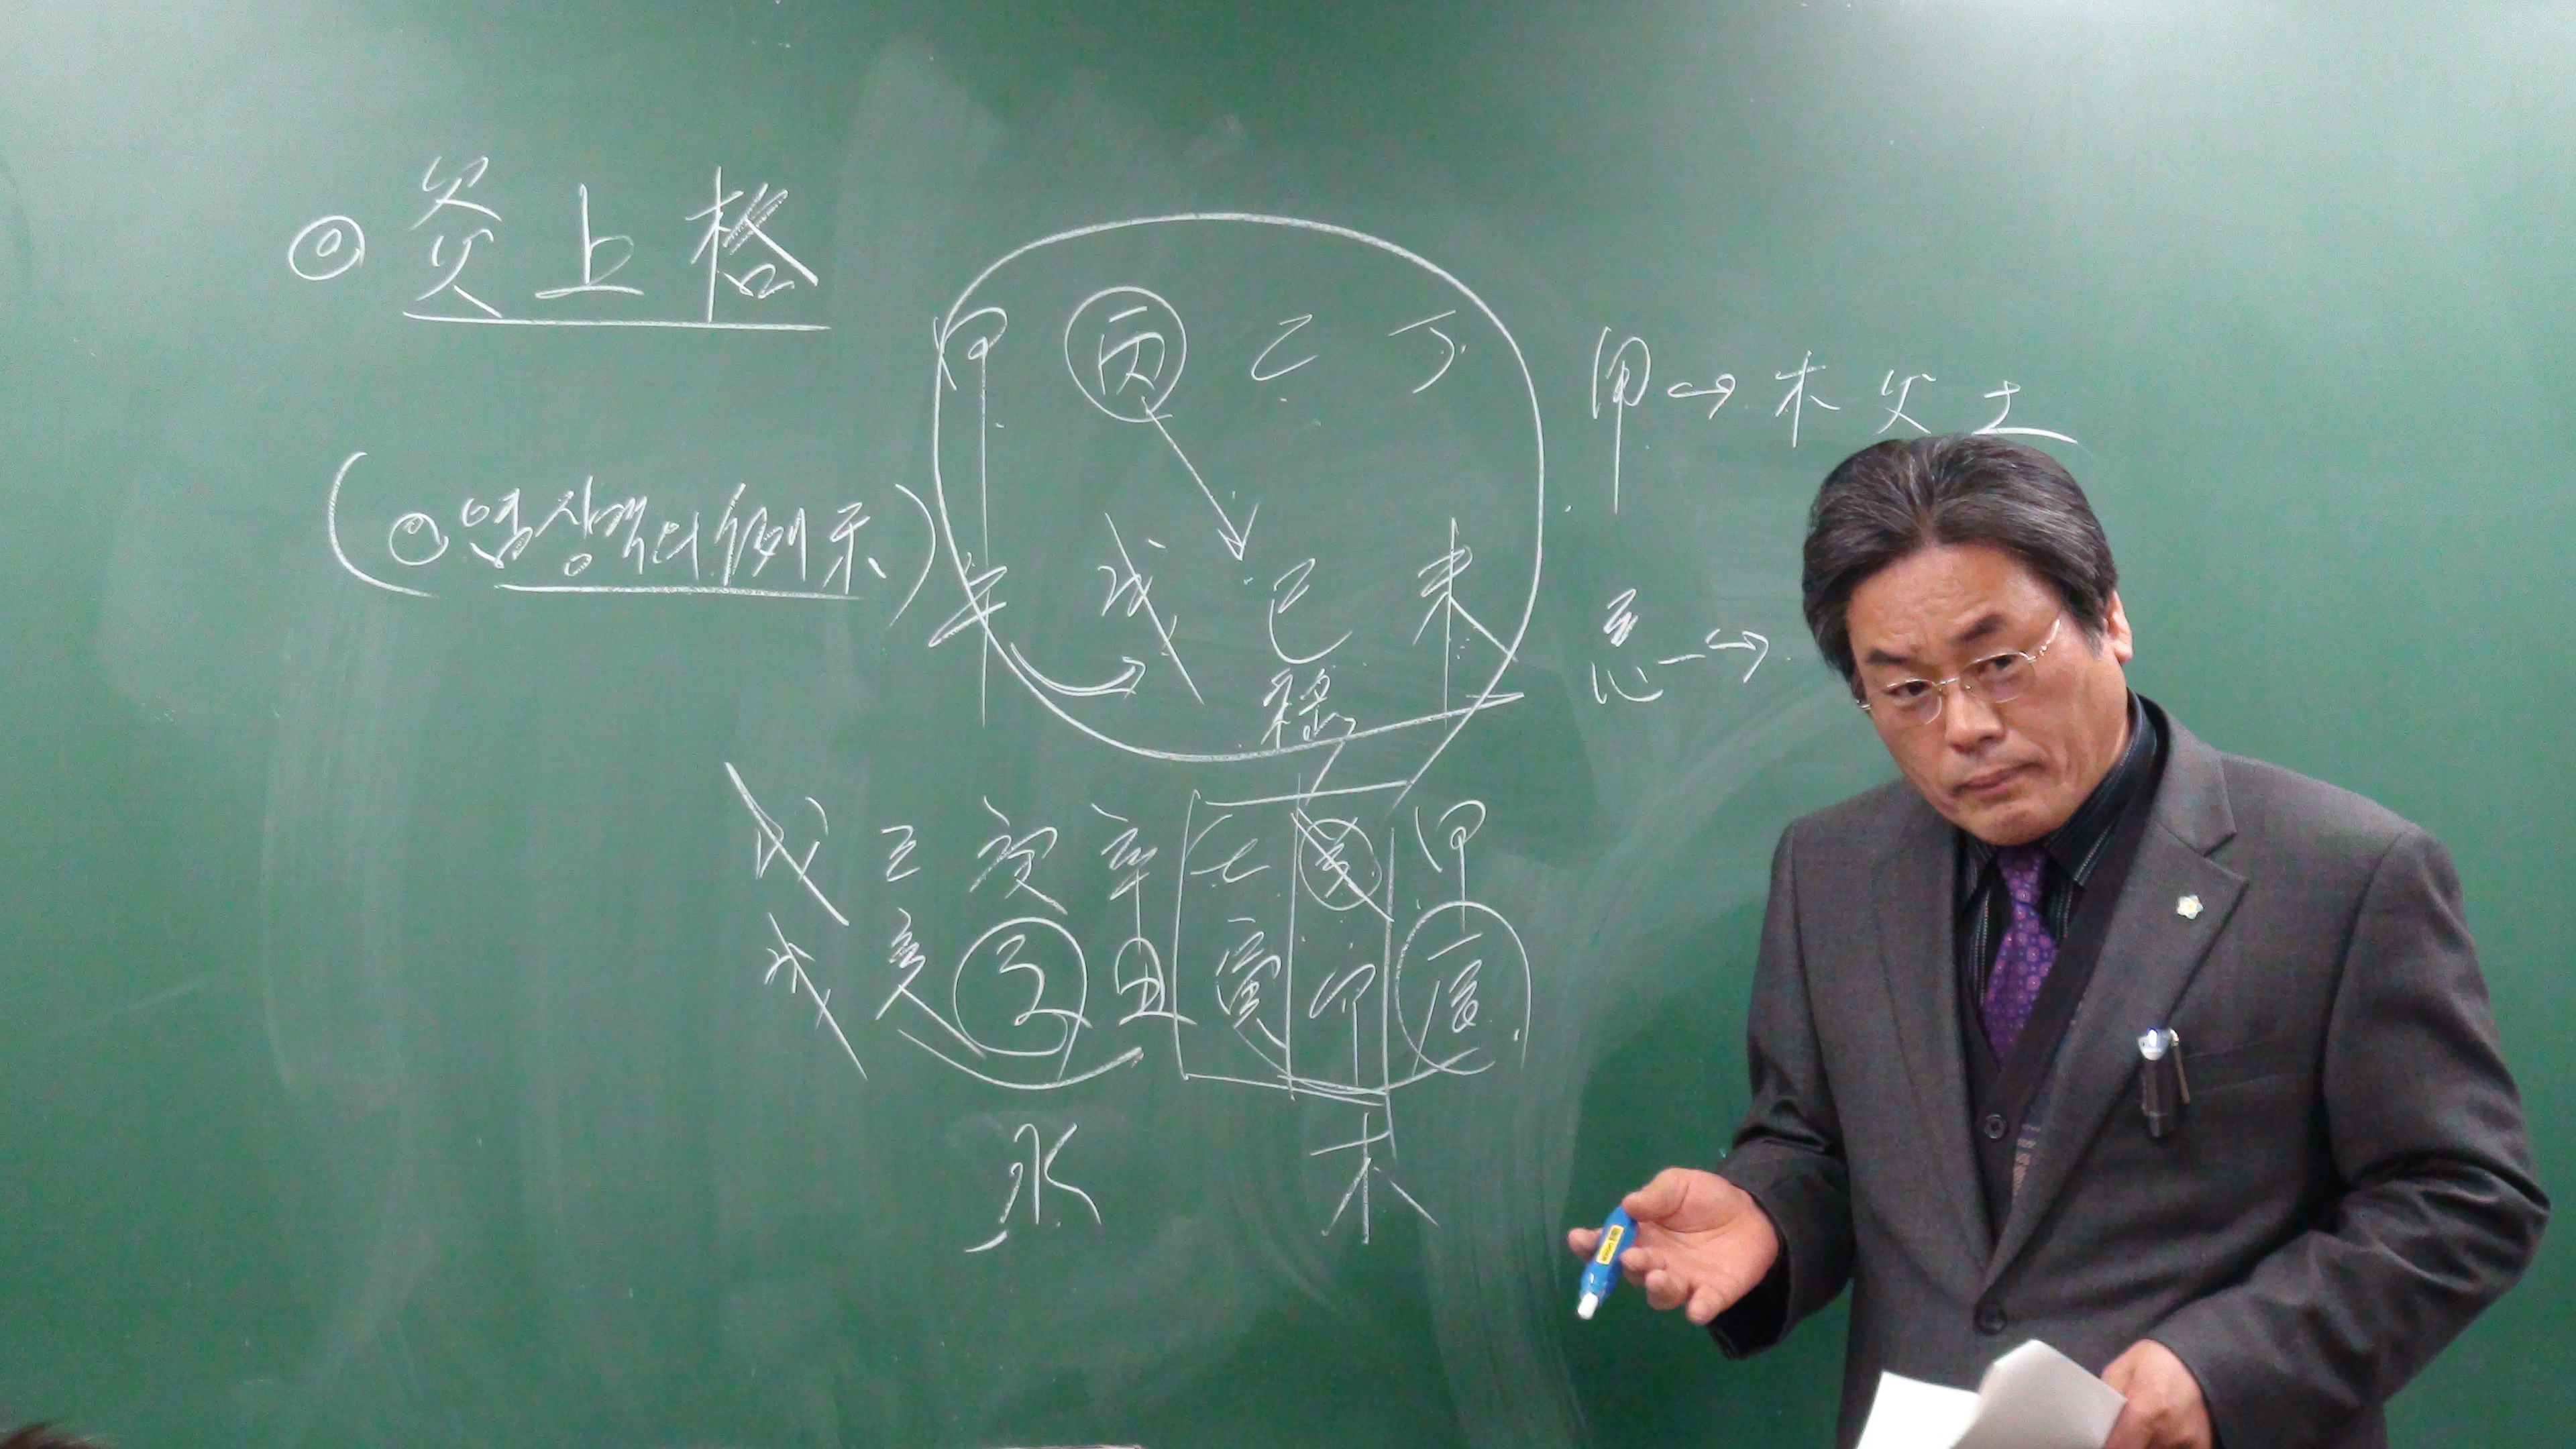 ⊙ 炎上格
甲 丙 乙 丁
甲→木 火 土
(⊙ 염상격의 例示)
午 戌 巳 未
忌→
戊 己 庚 辛 壬 癸 甲
戌 亥 子 丑 寅 卯 辰
水 木